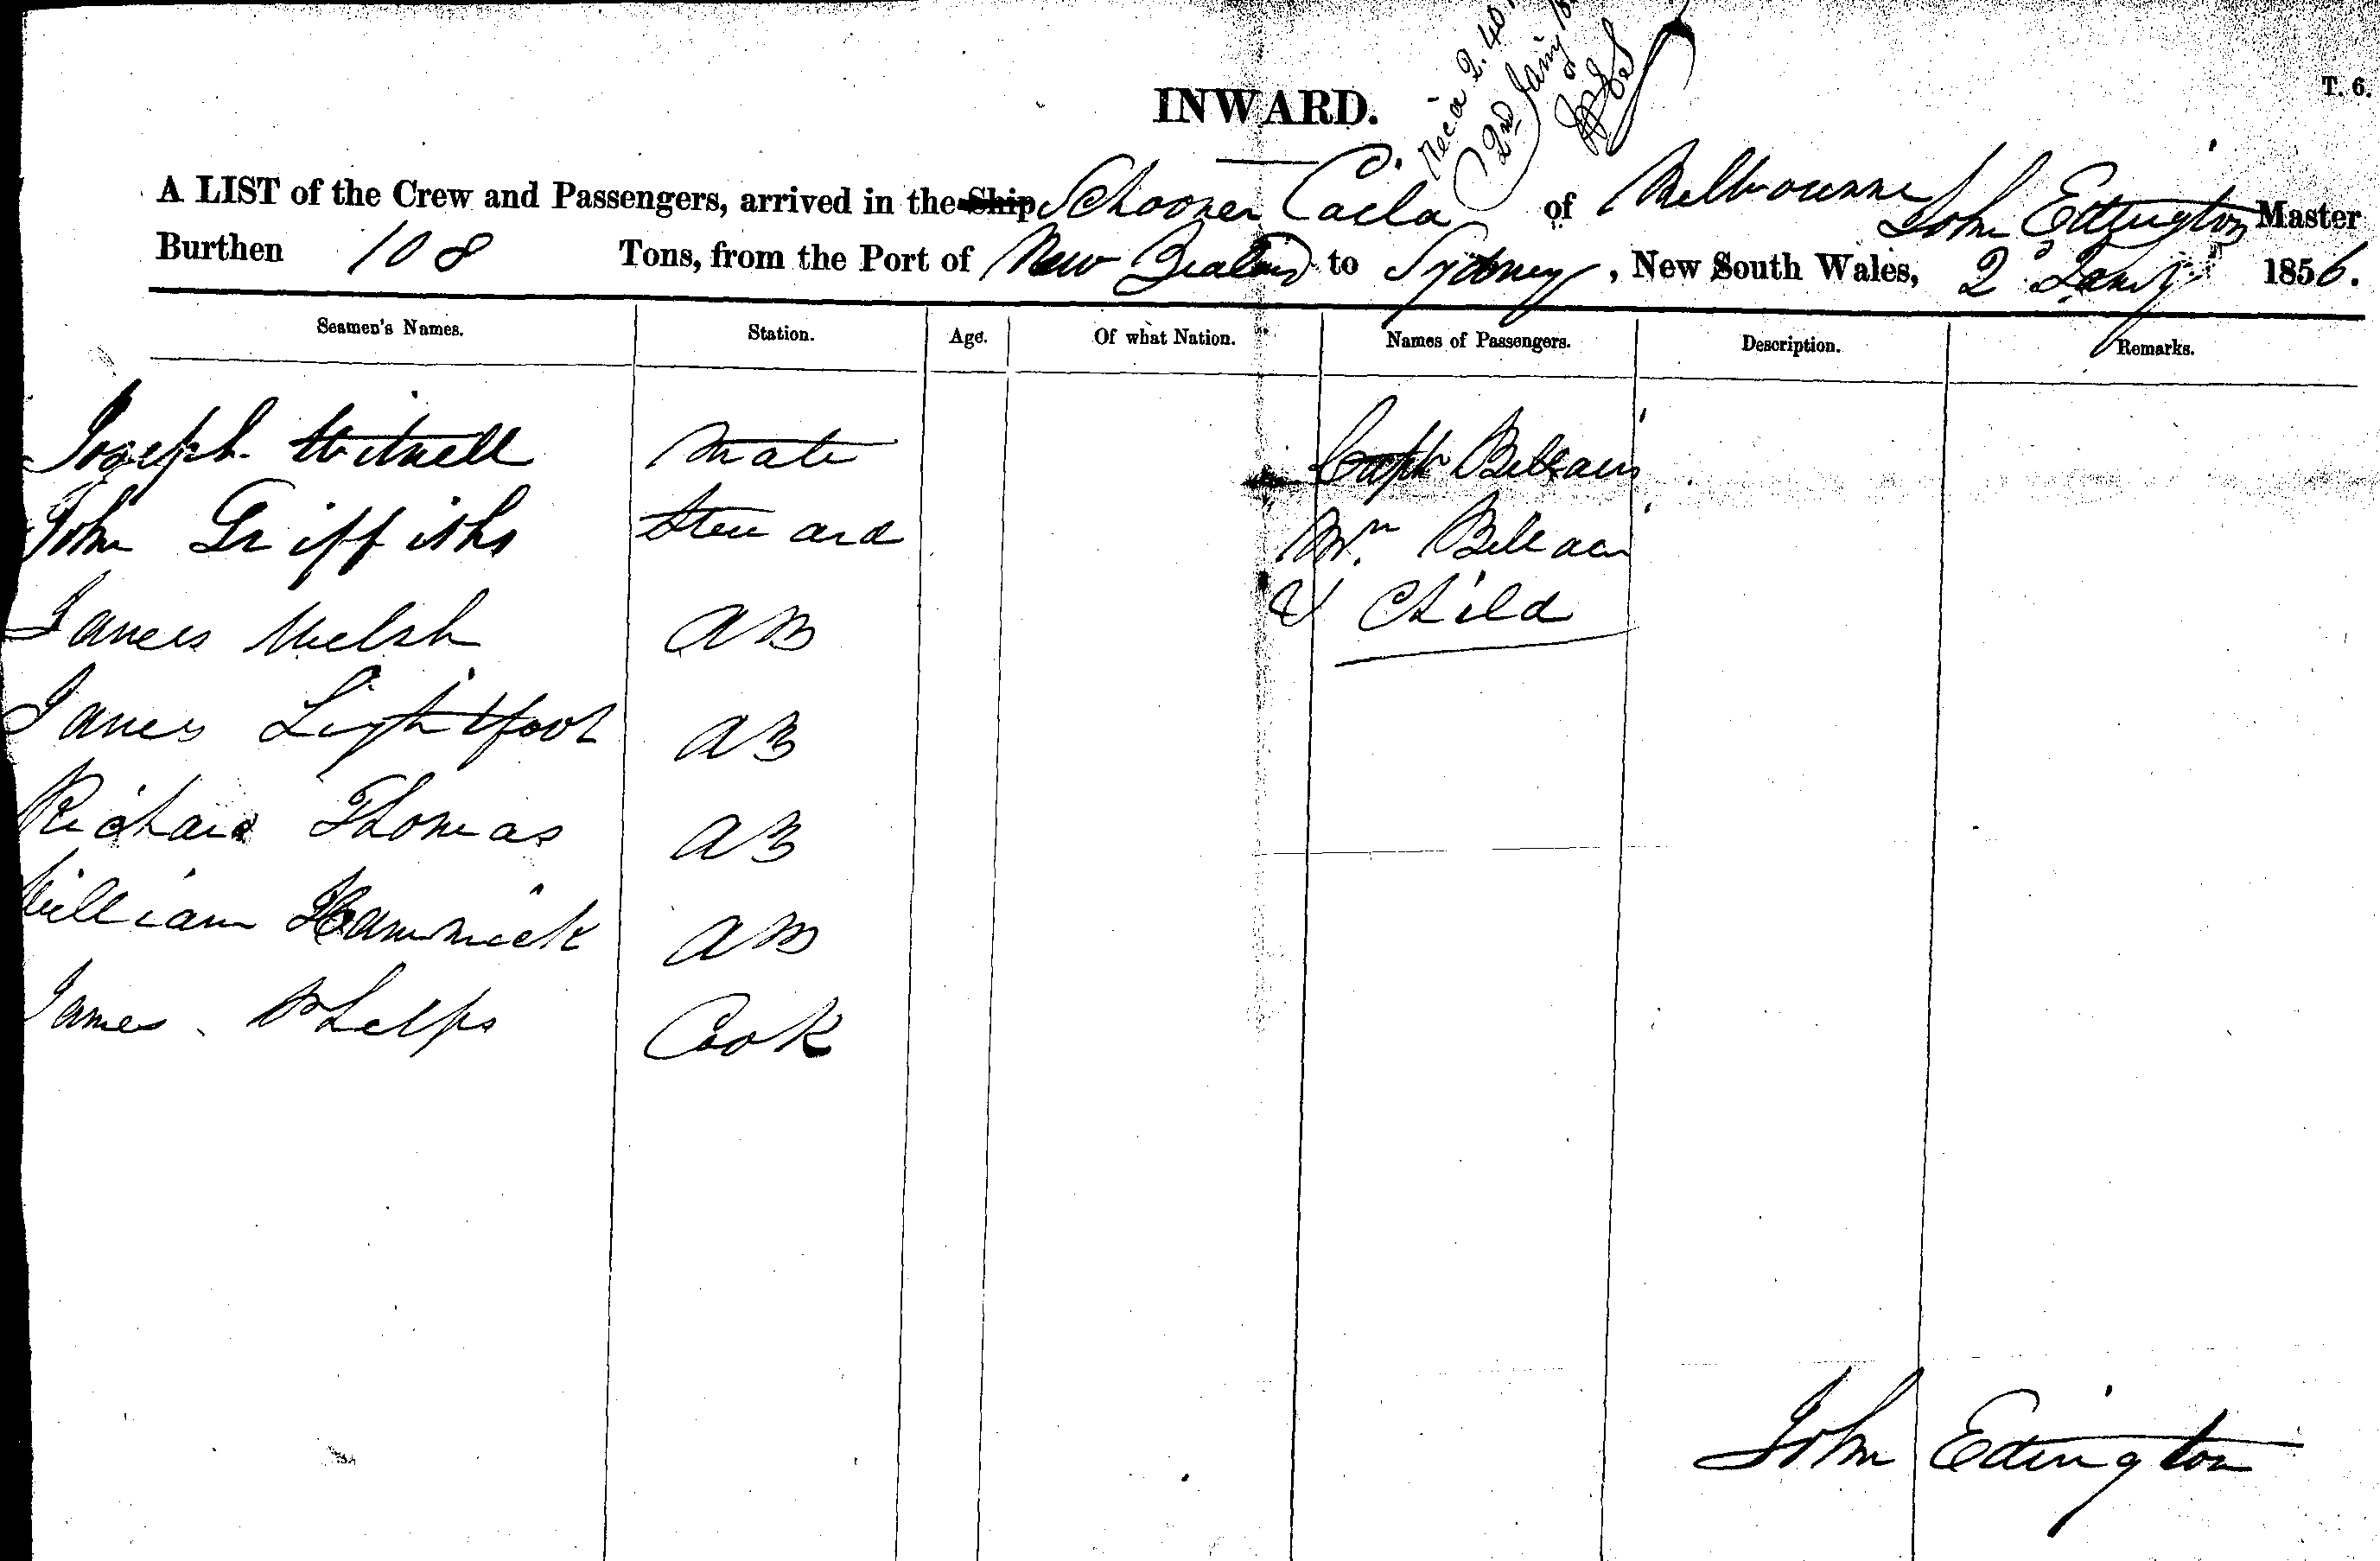 T. 6.
Rec'd 2.40
2nd Jany
INWARD.
A LIST of the Crew and Passengers, arrived in the Ship Schooner of Melbourne John Edington Master
Burthen 108 Tons, from the Port of New Zealand to Sydney, New South Wales, 2 Jany 1856.
Seamen's Names. Station. Age. Of what Nation. Names of Passengers. Description. Remarks.
Joseph Mate Capt
John Griffiths Steward
James Welsh AB & Child
James Lightfoot AB
Richard Thomas AB
William Hammick AB
James Phelps Cook
John Edington